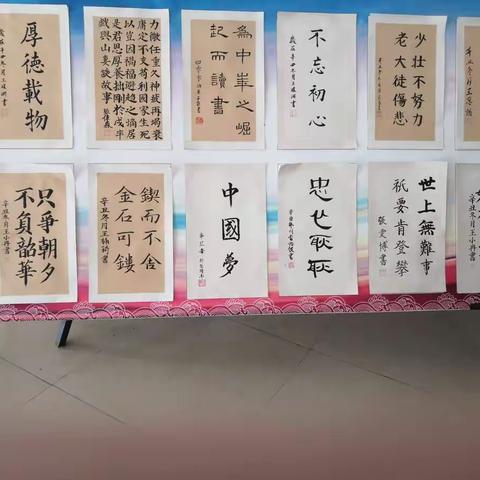 厚德載物
力微任重久神疲再竭衰
庸定不支苟利國家生死
以豈因禍福避趨之謫居
是君恩厚養拙剛於戍卒
戲與山妻談故事
為中華之崛
起而讀書
不忘初心
少壯不努力
老大徒傷悲
只爭朝夕
不負韶華
辛丑冬月王小冉書
鍥而不舍
金石可鏤
中國夢
忠心耿耿
世上無難事
祇要肯登攀
張雯博書